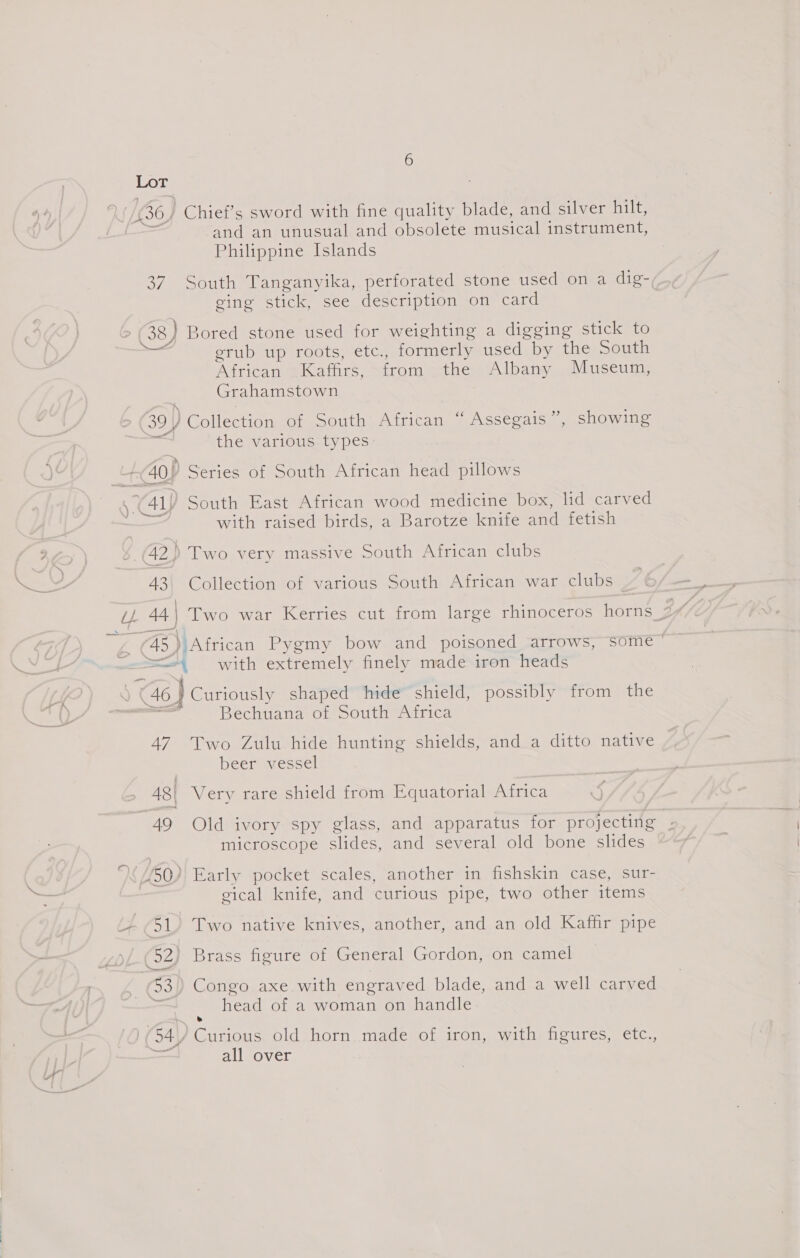 6
Lot
36 Chief's sword with fine quality blade, and silver hilt,
and an unusual and obsolete musical instrument,
Philippine Islands
37 South Tanganyika, perforated stone used on a dig-
ging stick, see description on card
38 Bored stone used for weighting a digging stick to
grub up roots, etc., formerly used by the South
African Kaffirs, from the Albany Museum,
Grahamstown
39 Collection of South African “ Assegais”, showing
the various types
40 Series of South African head pillows
41 South East African wood medicine box, lid carved
with raised birds, a Barotze knife and fetish
42 Two very massive South African clubs
43 Collection of various South African war clubs
44 Two war Kerries cut from large rhinoceros horns
45 African Pygmy bow and poisoned arrows, some
with extremely finely made iron heads
46 Curiously shaped hide shield, possibly from the
Bechuana of South Africa
47 Two Zulu hide hunting shields, and a ditto native
beer vessel
48 Very rare shield from Equatorial Africa
49 Old ivory spy glass, and apparatus for projecting
microscope slides, and several old bone slides
50 Early pocket scales, another in fishskin case, sur-
gical knife, and curious pipe, two other items
51 Two native knives, another, and an old Kaffir pipe
52 Brass figure of General Gordon, on camel
53 Congo axe with engraved blade, and a well carved
head of a woman on handle
54 Curious old horn made of iron, with figures, etc.,
all over